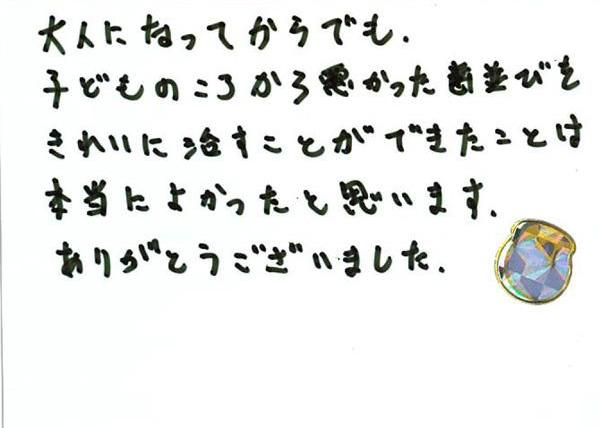 大人になってからでも、
子どものころから悪かった歯並びを
きれいに治すことができたことは
本当によかったと思います。
ありがとうございました。